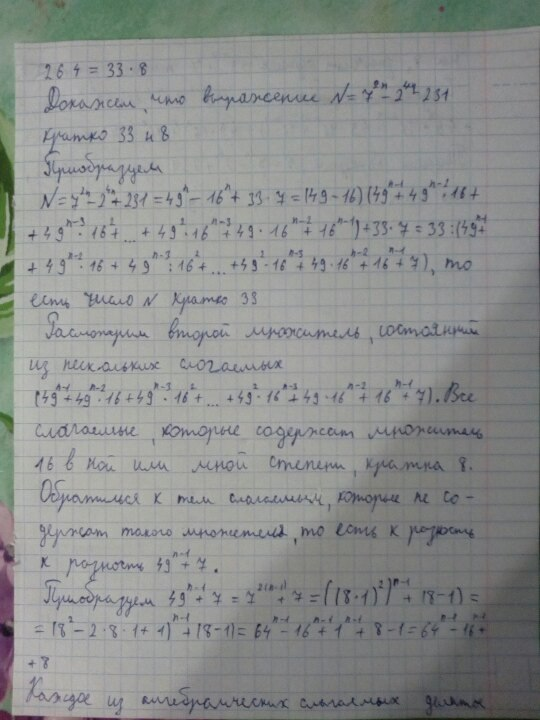 264 = 33·8
Докажем, что выражение N = 7²ⁿ - 2⁴ⁿ - 231
кратко 33 и 8
Приобразуем
N = 7²ⁿ - 2⁴ⁿ + 231 = 49ⁿ - 16ⁿ + 33·7 = (49 - 16)(49ⁿ⁻¹ + 49ⁿ⁻²·16 +
+ 49ⁿ⁻³·16² + ... + 49²·16ⁿ⁻³ + 49·16ⁿ⁻² + 16ⁿ⁻¹) + 33·7 = 33:(49ⁿ⁻¹ +
+ 49ⁿ⁻²·16 + 49ⁿ⁻³:16² + ... + 49²·16ⁿ⁻³ + 49·16ⁿ⁻² + 16ⁿ⁻¹ + 7), то
есть число N кратко 33
Расмотрим второй множитель, состояний
из нескольких слогаемых
(49ⁿ⁻¹ + 49ⁿ⁻²·16 + 49ⁿ⁻³·16² + ... + 49²·16ⁿ⁻³ + 49·16ⁿ⁻² + 16ⁿ⁻¹ + 7). Все
слагаемые, которые содержат множитель
16 в той или иной степени, кратка 8.
Обратимся к тем слагаемым, которые не со-
держат такого множителя, то есть к разность
к разность 49ⁿ⁻¹ + 7.
Приобразуем 49ⁿ⁻¹ + 7 = 7²⁽ⁿ⁻¹⁾ + 7 = ((8·1)²)ⁿ⁻¹ + (8-1) =
= (8² - 2·8·1 + 1)ⁿ⁻¹ + (8-1) = 64ⁿ⁻¹ - 16ⁿ⁻¹ + 1ⁿ⁻¹ + 8 - 1 = 64ⁿ⁻¹ - 16ⁿ⁻¹ +
+ 8
Каждое из алгебраических слагаемых